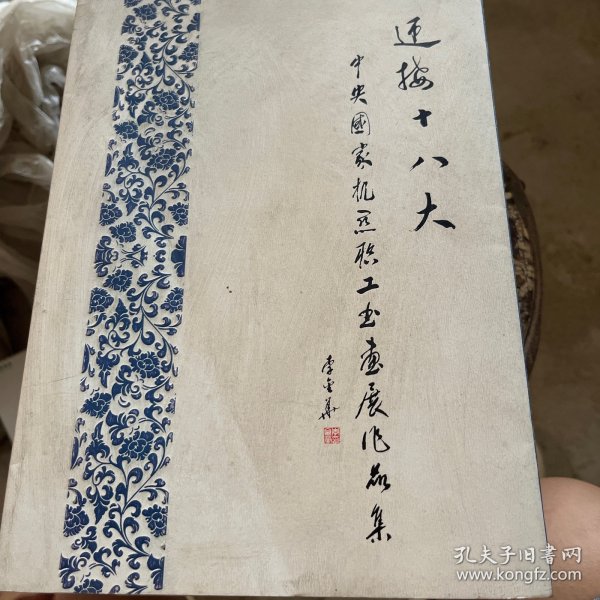 迎接十八大
中央國家机关职工书画展作品集
李金華
孔夫子旧書网
www.kongfz.com